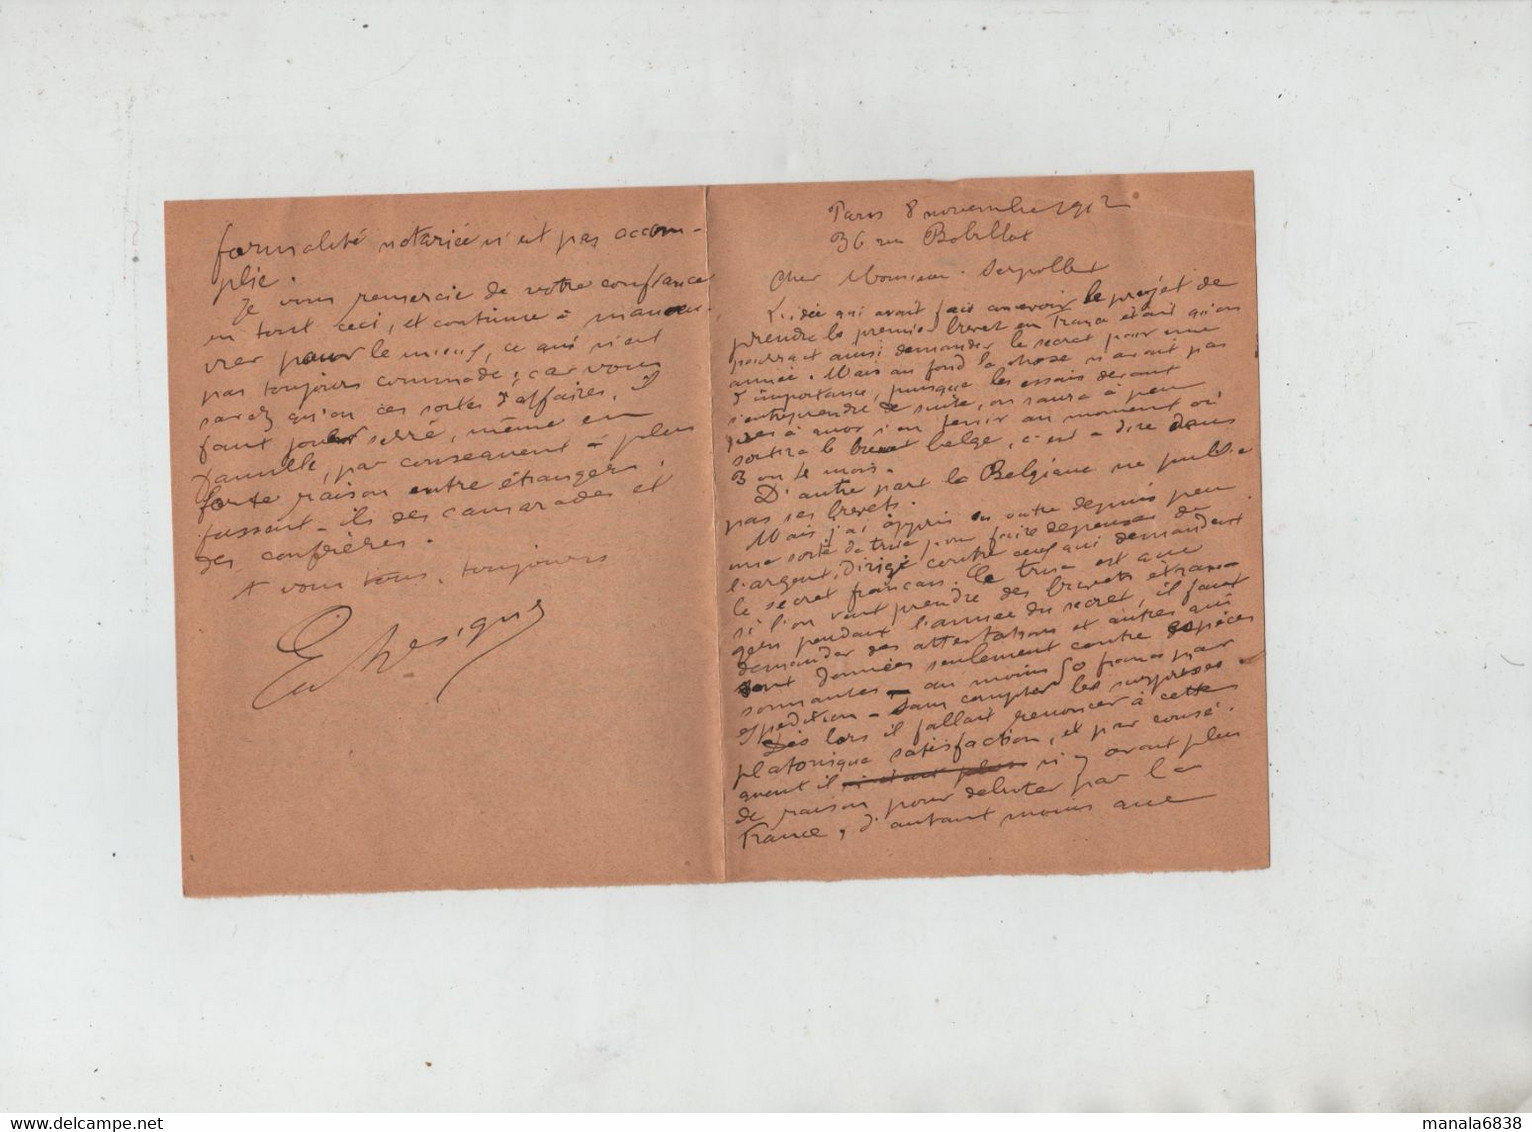 Paris 8 novembre 1912
36 rue Bobillot
Cher Monsieur Serpollet
L'idée qui avait fait concevoir le projet de
prendre le premier brevet en France était qu'on
pourrait ainsi demander le secret pour une
année. Mais au fond la chose n'avait pas
d'importance, puisque les essais devant
s'entreprendre de suite, on saura à peu
près à quoi s'en tenir au moment où
sortira le brevet belge, c'est à dire dans
3 ou 4 mois.
D'autre part la Belgique ne publie
pas ses brevets.
Mais j'ai appris en outre depuis peu
une sorte de truc pour faire dépenser de
l'argent, dirigé contre ceux qui demandent
le secret français. Le truc est que
si l'on veut prendre des brevets étran-
gers pendant l'année du secret, il faut
demander des attestations et autres qui
sont données seulement contre espèces
sonnantes - au moins 50 francs par
expédition - sans compter les surprises.
Dès lors il fallait renoncer à cette
platonique satisfaction, et par consé-
quent il n'y avait plus
de raison pour débuter par la
France, d'autant moins que
formalité notariée n'est pas accom-
plie.
Je vous remercie de votre confiance
en tout ceci, et continue à manœu-
vrer pour le mieux, ce qui n'est
pas toujours commode, car vous
savez qu'en ces sortes d'affaires, il
faut jouer serré, même en
famille, par conséquent à plus
forte raison entre étrangers,
fussent-ils des camarades et
des confrères.
A vous tous, toujours
manala6838